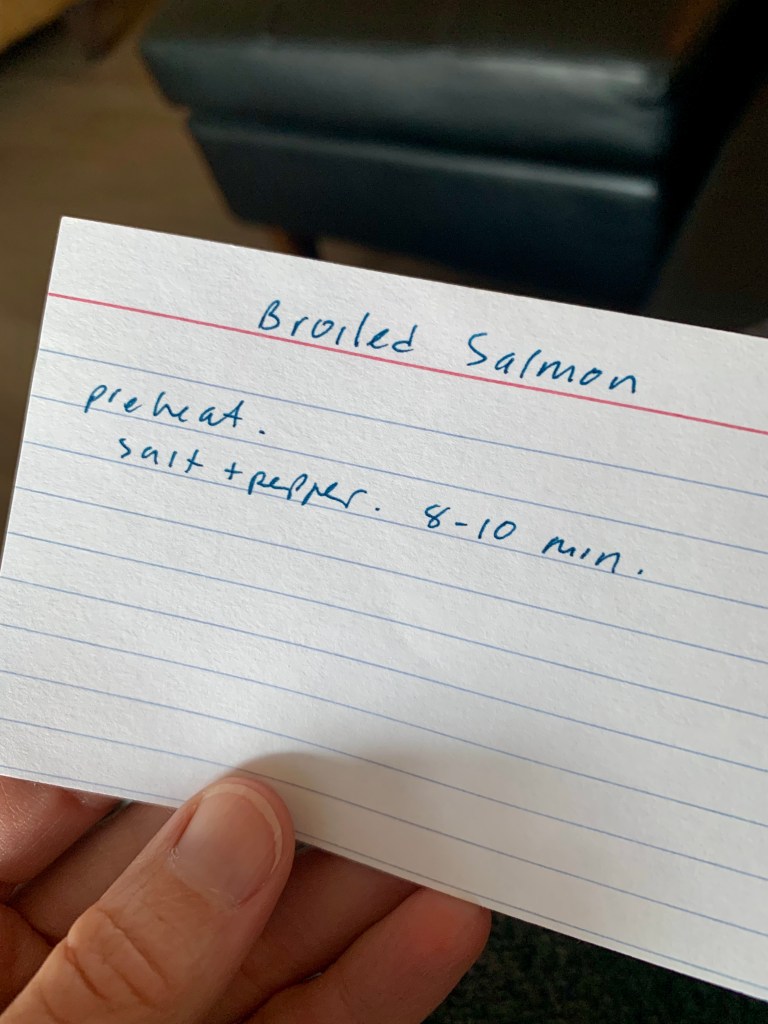 Broiled Salmon
preheat.
salt + pepper. 8-10 min.